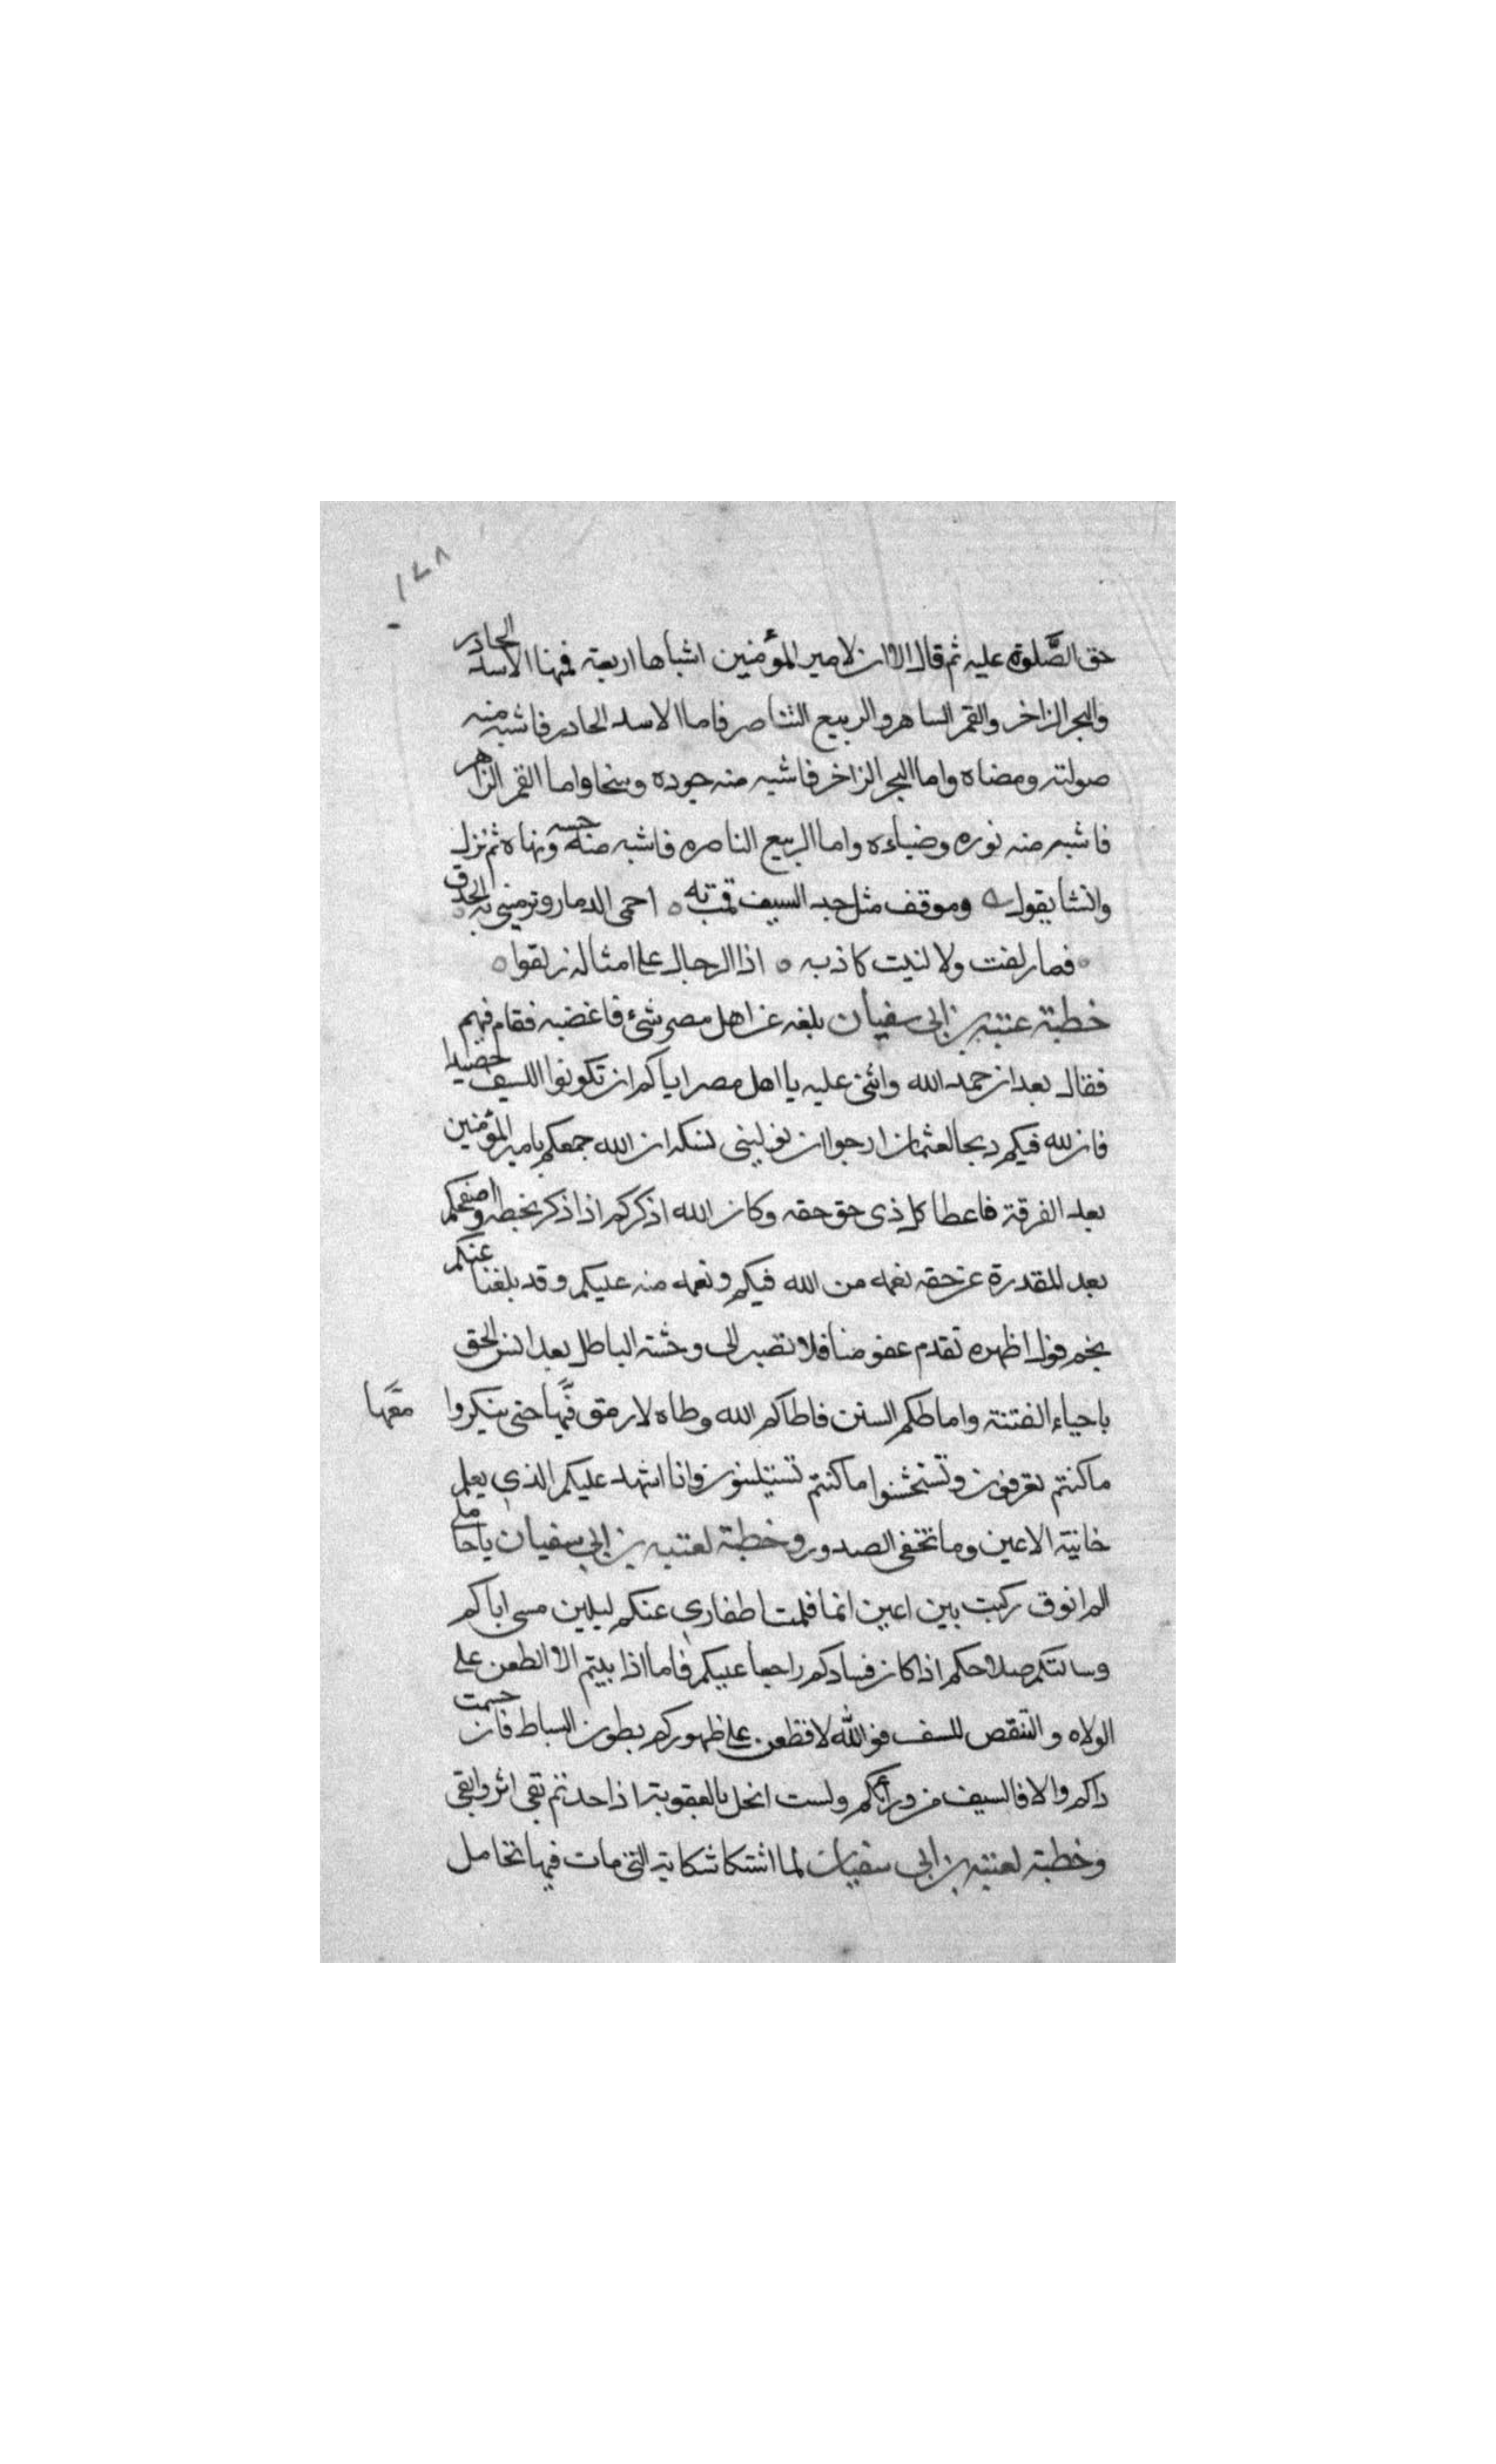 ١٧٨
حق الصَّلوة عليه ثم قال الا ان لامير المؤمنين اشباها اربعة فمنها الاسد الحادر
والبحر الزاخر والقمر الساهر والربيع الناصر فاما الاسد الحادر فاشبه منه
صولته ومضاه واما البحر الزاخر فاشبه منه جوده وسخا واما القمر الزاهر
فاشبه منه نوره وضياءه واما الربيع الناصره فاشبه منه حسنه وبهاه ثم نزل
وانشا يقول وموقف مثل حد السيف قمت به احمى الدمار وترمينى به الحدق
فما زلفت ولا لنيت كاذبه اذا الرجال على امثاله زلقوا
خطبة عتبه بن ابى سفيان بلغه عن اهل مصر شىء فاغضبه فقام فيهم
فقال بعد ان حمد الله واثنى عليه يا اهل مصر اياكم ان تكونوا للسيف حصيدا
فان لله فيكم دبحا لعثمان ارجوا ان يولينى نسكه ان الله جمعكم بامير المؤمنين
بعد الفرقة فاعطا كل ذى حق حقه وكان الله اذكركم اذا ذكر بخطه واصفحكم
بعد المقدرة عن حقه نعمه من الله فيكم ونعمه منه عليكم وقد بلغنا عنكم
نجم قول اظهره تقدم عفو منا فلا تصير الى وحشة الباطل بعد انس الحق
باحياء الفتنة واماطكم السنن فاطاكم الله وطاه لا رمق فيها حتى ينكروا معها
ما كنتم تعرفون وتستخشنوا ما كنتم تستيلنون وانا اشهد عليكم الذى يعلم
خانية الاعين وما تخفى الصدور وخطبة لعتبه بن ابى سفيان يا حاملى
الم انوق ركبت بين اعين انما قلمت اظفارى عنكم ليلين مسى اياكم
وسالتكم صلاحكم اذا كان فسادكم راجعا عليكم فاما اذا بيتم الا الطعن على
الولاه والتنقص للسف فوالله لاقطعن على ظهوركم بطون السياط فان حسمت
داكم والا فالسيف من ورأكم ولست انحل بالعقوبة اذا حدتم بقى اثر وابقى
وخطبة لعتبه بن ابى سفيان لما اشتكا شكاية التى مات فيها تحامل